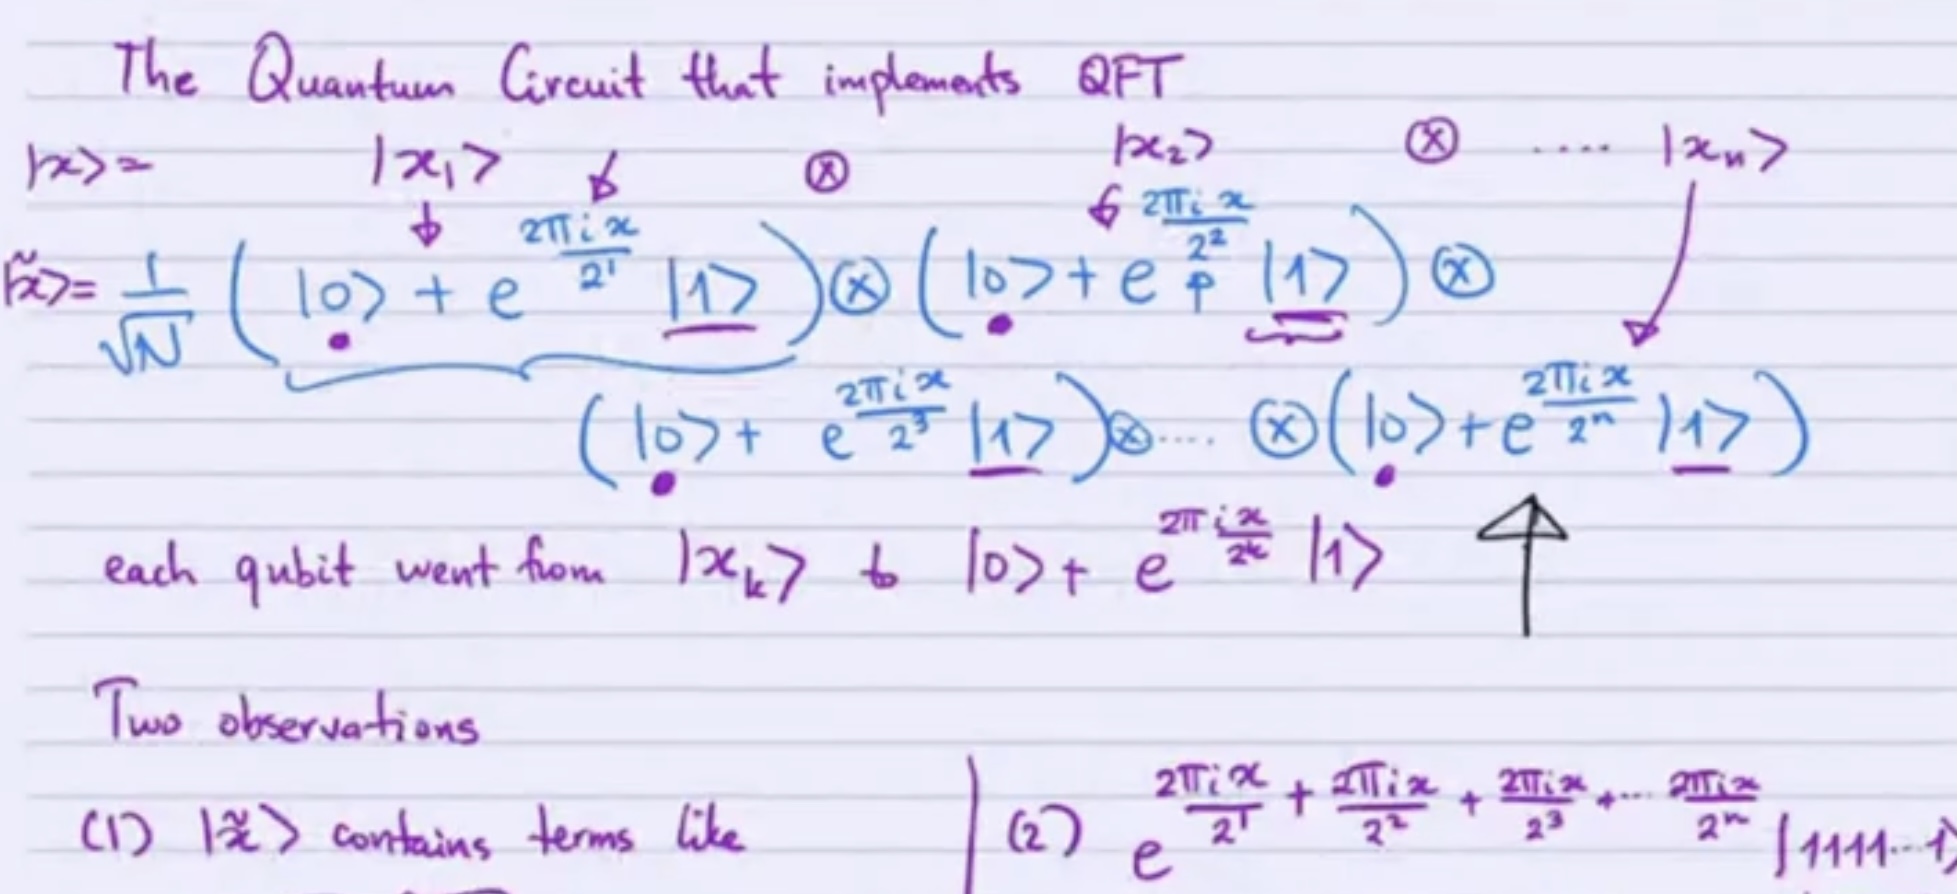 The Quantum Circuit that implements QFT
|x>= |x₁> ⊗ |x₂> ⊗ .... |xₙ>
|x̃>= 1/√N (|0> + e^(2πix/2¹) |1>) ⊗ (|0> + e^(2πix/2²) |1>) ⊗
(|0> + e^(2πix/2³) |1>) ⊗.... ⊗ (|0> + e^(2πix/2ⁿ) |1>)
each qubit went from |xₖ> to |0> + e^(2πix/2ᵏ) |1>
Two observations
(1) |x̃> contains terms like
(2) e^(2πix/2¹ + 2πix/2² + 2πix/2³ +... 2πix/2ⁿ) |1111...1>